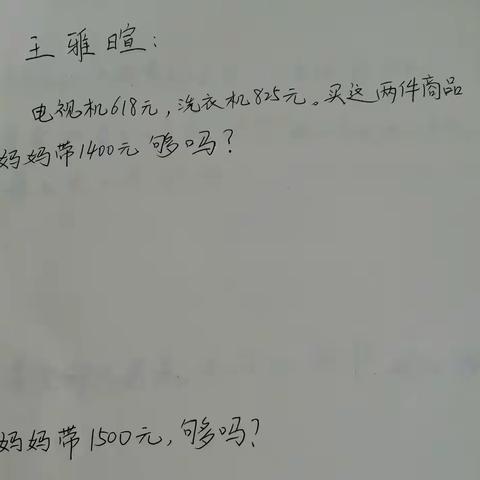 王雅暄：
电视机618元，洗衣机825元。买这两件商品
妈妈带1400元 够吗？
妈妈带1500元，够吗？